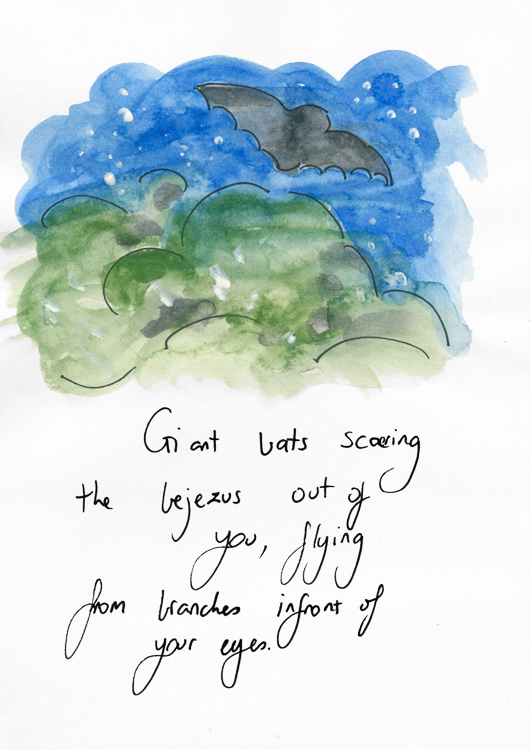 Giant bats scaring
the bejezus out of
you, flying
from branches infront of
your eyes.